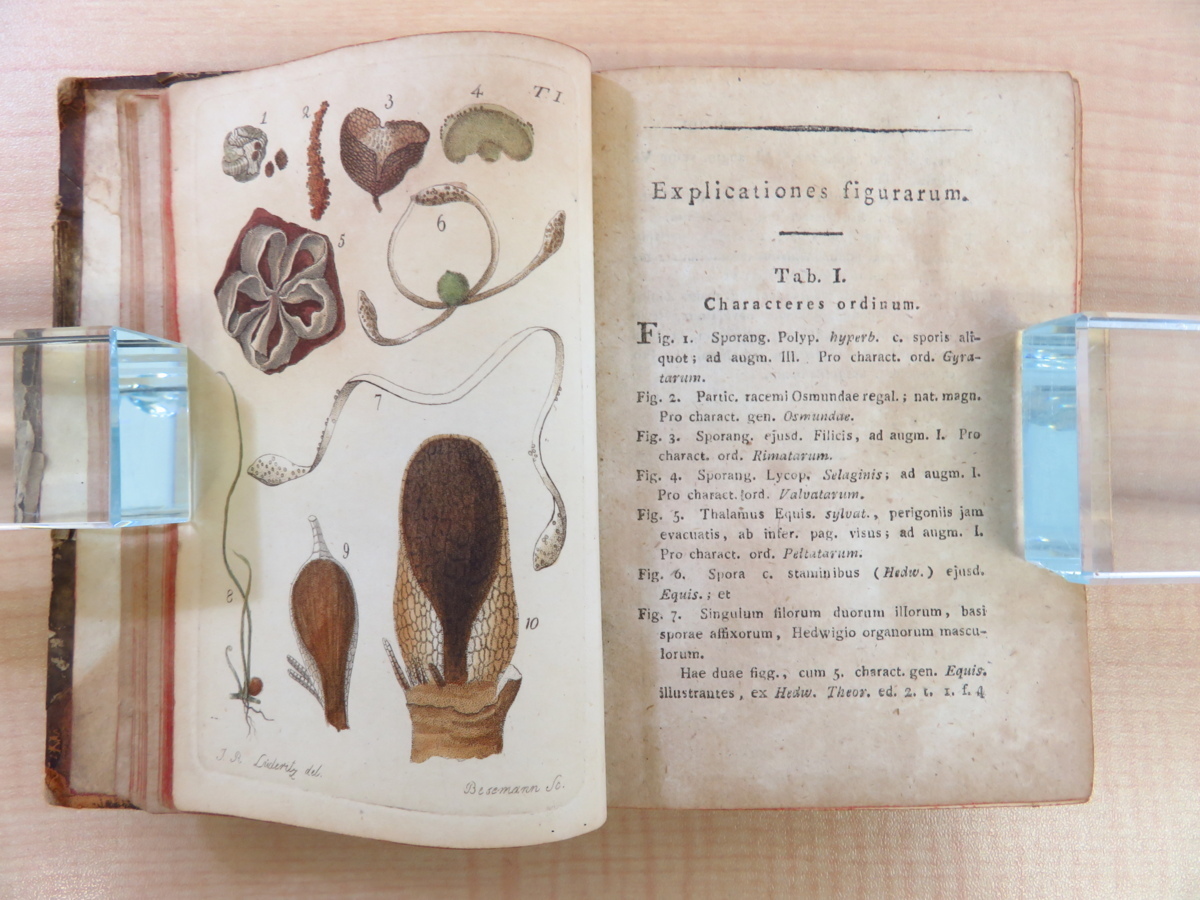 T I.
1
2
3
4
5
6
7
8
9
10
del.
Besemann Sc.
Explicationes figurarum.
Tab. I.
Characteres ordinum.
Fig. 1. Sporang. Polyp. hyperb. c. sporis ali-
quot; ad augm. III. Pro charact. ord. Gyra-
tarum.
Fig. 2. Partic. racemi Osmundae regal.; nat. magn.
Pro charact. gen. Osmundae.
Fig. 3. Sporang. ejusd. Filicis, ad augm. I. Pro
charact. ord. Rimatarum.
Fig. 4. Sporang. Lycop. Selaginis; ad augm. I.
Pro charact. ord. Valvatarum.
Fig. 5. Thalamus Equis. sylvat., perigoniis jam
evacuatis, ab infer. pag. visus; ad augm. I.
Pro charact. ord. Peltatarum.
Fig. 6. Spora c. staminibus (Hedw.) ejusd.
Equis.; et
Fig. 7. Singulum filorum duorum illorum, basi
sporae affixorum, Hedwigio organorum mascu-
lorum.
Hae duae figg., cum 5. charact. gen. Equis.
illustrantes, ex Hedw. Theor. ed. 2. t. 1. f. 4